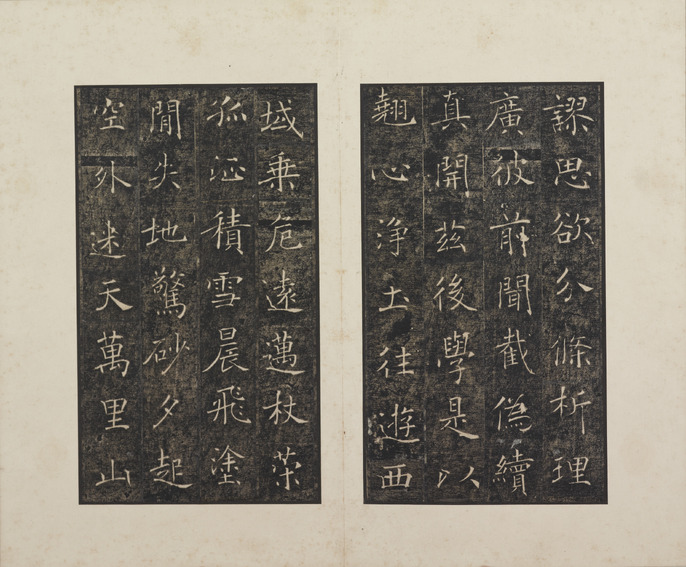 謬思欲分條析理
廣彼前聞截偽續
真開茲後學是以
翹心淨土往遊西
域乗危遠邁杖䇿
孤征積雪晨飛塗
閒失地驚砂夕起
空外迷天萬里山